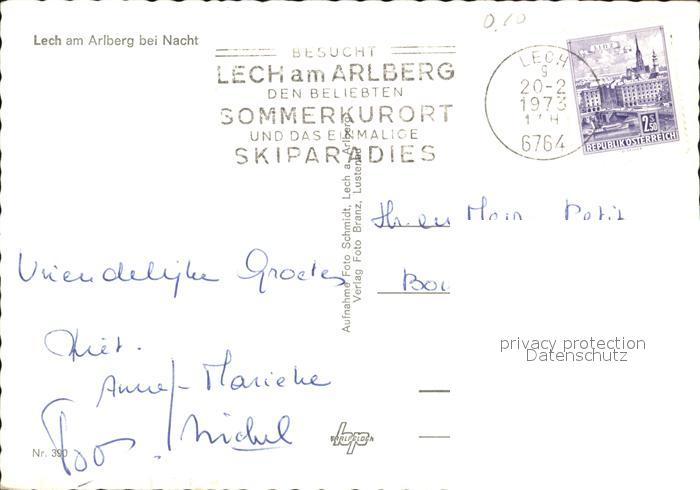 0,10
Lech am Arlberg bei Nacht
BESUCHT
LECH am ARLBERG
DEN BELIEBTEN
SOMMERKURORT
UND DAS EINMALIGE
SKIPARADIES
LECH
20-2
1973
6764
LINZ
2.S50
REPUBLIK ÖSTERREICH
Aufnahme Foto Schmidt, Lech a. Arlberg
Verlag Foto Branz, Lustenau
Vriendelijke Groeten
Piet.
Anne-Marieke
Michel
Bou
privacy protection
Datenschutz
Nr. 390
bp